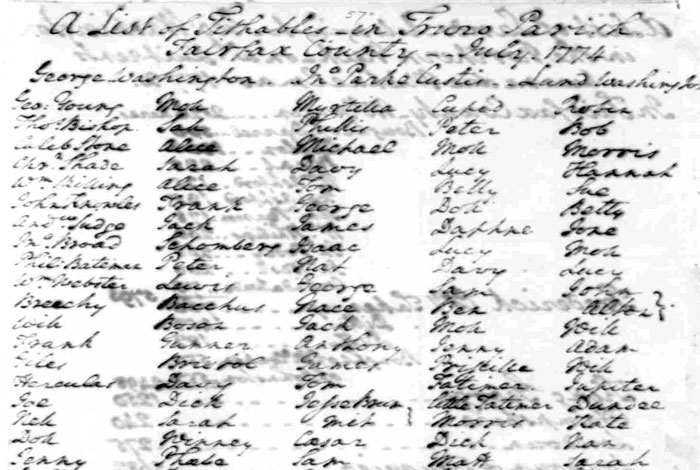 A List of Tithables in Truro Parish
Fairfax County — July. 1774
George Washington Jnº Parke Custis Lund Washington
Geo: Young Moll Myrtilla Cupid Robin
Thoˢ Bishop Sall Phillis Peter Bob
Caleb Stone Alice Michael Moll Morris
Chrˢ Shade Sarah Davy Lucy Hannah
Wᵐ Skilling Alice Tom Betty Sue
John Knowles Frank George Doll Betty
Andʷ Judge Jack James Daphne Jone
Jnº Broad Schomberg Isaac Lucy Moll
Phil: Bateman Peter Nat Davy Lucy
Wᵐ Webster Lewis George Sam John
Breechy Bacchus Nace Ben Alton
Will Boson Jack Moll Will
Frank Gunner Anthony Jenny Adam
Giles Bristol James Priscilla
Hercules Davy Tom Jupiter
Joe Dick Dundee
Nell Sarah Morris Kate
Doll Winney Cæsar Dick Nan
Jenny Phœbe Sam Matt Sarah